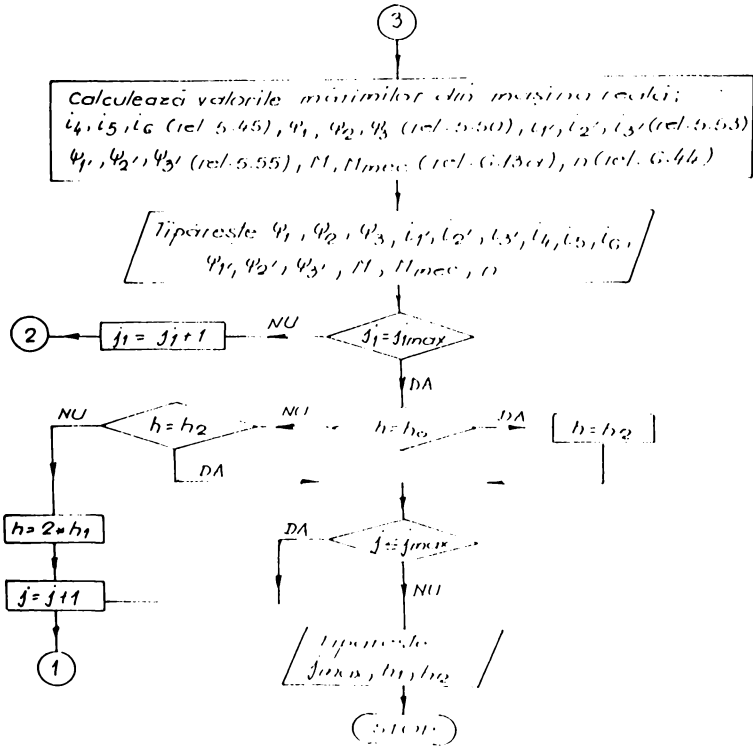 3
Calculează valorile mărimilor din mașina reală;
i4, i5, i6 (rel. 5.45), Ψ1, Ψ2, Ψ3 (rel. 5.50), i1', i2', i3' (rel. 5.53)
Ψ1', Ψ2', Ψ3' (rel. 5.55), M, Mmec (rel. 6.13a), n (rel. 6.44)
Tipărește Ψ1, Ψ2, Ψ3, i1', i2', i3', i4, i5, i6,
Ψ1', Ψ2', Ψ3', M, Mmec, n
2
j1 = j1 + 1
NU
j1 = j1max
DA
NU
h = h2
NU
h = h0
DA
h = h2
DA
h = 2 * h1
DA
j = jmax
j = j + 1
NU
1
Tipărește
jmax, h1, h2
STOP